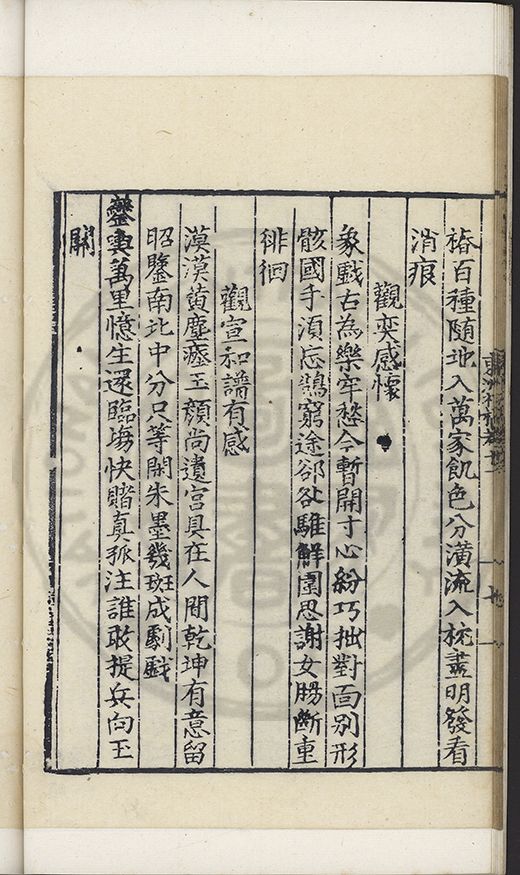 裕百種随地入萬家飢色分潢流入梳盡明發看
消痕
觀奕感懐
象戱古為樂牢愁今暫開寸心紛巧拙對面别形
骸國手湏忘鵲窮途郤騅解圍思謝女膓斷重
徘徊
觀宣和譜有感
漠漠黄塵瘞玉顔尚遺宫具在人間乾坤有意留
昭鑒南北中分只等閑朱墨幾斑成劇戱
輿萬里憶生還臨塲快賭真孤注誰敢提兵向玉
關